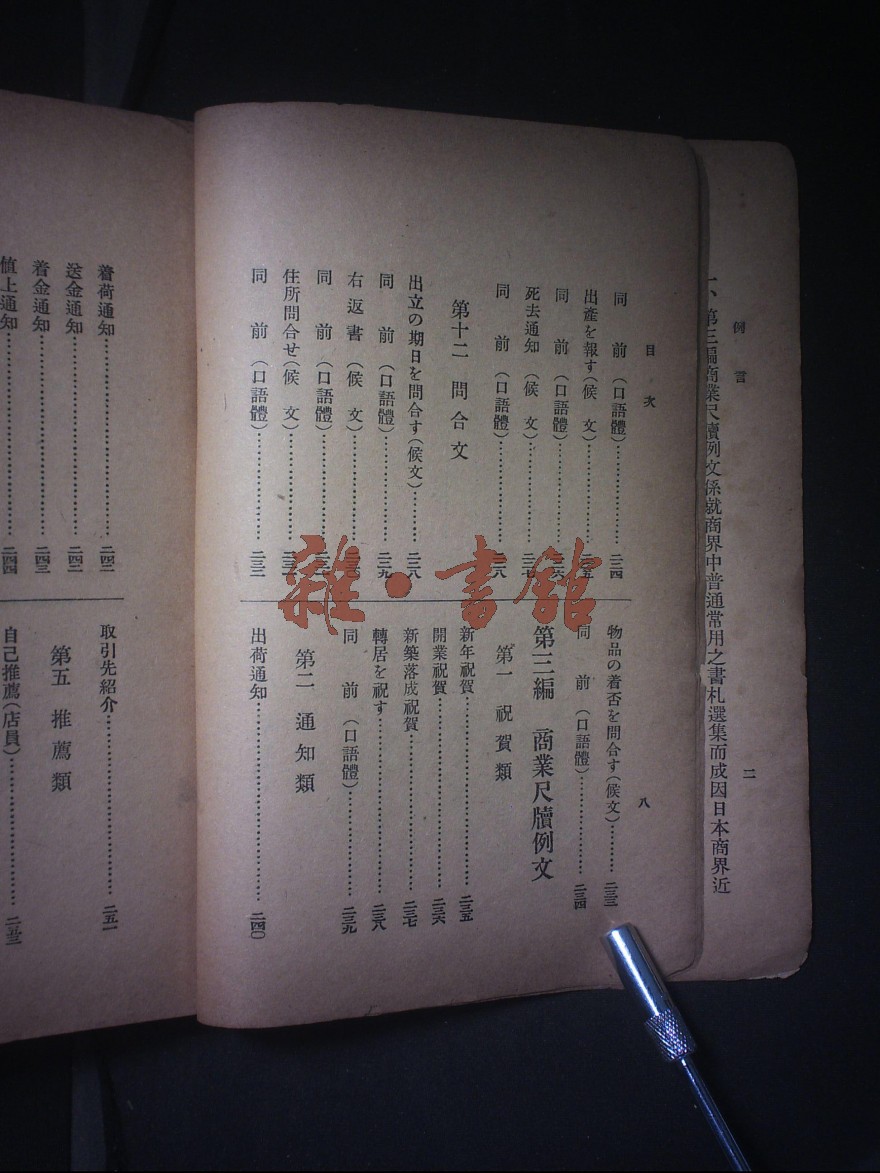 例言
二
一、第三編商業尺牘例文係就商界中普通常用之書札選集而成因日本商界近
目次
八
同　前（口語體）……二二四
出產を報す（候　文）……
同　前（口語體）……
死去通知（候　文）……
同　前（口語體）……
第十二　問合文
出立の期日を問合す（候文）……
同　前（口語體）……
右返書（候　文）……
同　前（口語體）……
住所問合せ（候　文）……
同　前（口語體）……
物品の着否を問合す（候文）……二三三
同　前（口語體）……二三四
第三編　商業尺牘例文
第一　祝賀類
新年祝賀……二三五
開業祝賀……二三六
新築落成祝賀……二三七
轉居を祝す……二三八
同　前（口語體）……二三九
第二　通知類
出荷通知……二四〇
着荷通知……
送金通知……
着金通知……二四三
値上通知……二四四
取引先紹介……二五一
第五　推薦類
自己推薦（店員）……
雜·書館